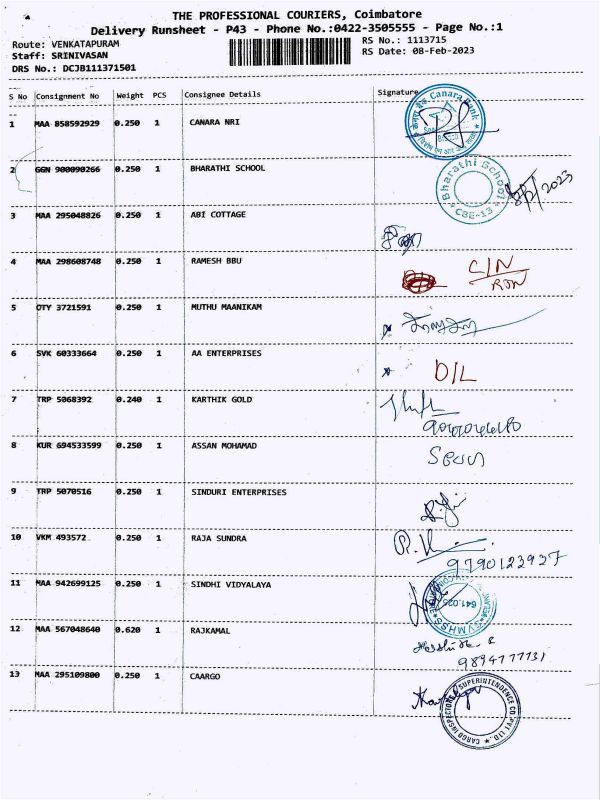 THE PROFESSIONAL COURIERS, Coimbatore
Delivery Runsheet - P43 - Phone No.:0422-3505555 - Page No.:1
Route: VENKATAPURAM RS No.: 1113715
Staff: SRINIVASAN RS Date: 08-Feb-2023
DRS No.: DCJB111371501
S No Consignment No Weight PCS Consignee Details Signature
1 MAA 858592929 0.250 1 CANARA NRI Canara Bank
2 GGN 900090266 0.250 1 BHARATHI SCHOOL Bharathi School CBE-13 2023
3 MAA 295048826 0.250 1 ABI COTTAGE
4 MAA 298608748 0.250 1 RAMESH BBU C/N
5 OTY 3721591 0.250 1 MUTHU MAANIKAM
6 SVK 60333664 0.250 1 AA ENTERPRISES D/L
7 TRP 5068392 0.240 1 KARTHIK GOLD
8 KUR 694533599 0.250 1 ASSAN MOHAMAD
9 TRP 5070516 0.250 1 SINDURI ENTERPRISES
10 VKM 493572 0.250 1 RAJA SUNDRA 9790123937
11 MAA 942699125 0.250 1 SINDHI VIDYALAYA SVMHSS 641.025
12 MAA 567048640 0.620 1 RAJKAMAL
13 MAA 295109800 0.250 1 CAARGO CARGO INSPECTORS SUPERINTENDENCE CO. PVT. LTD.